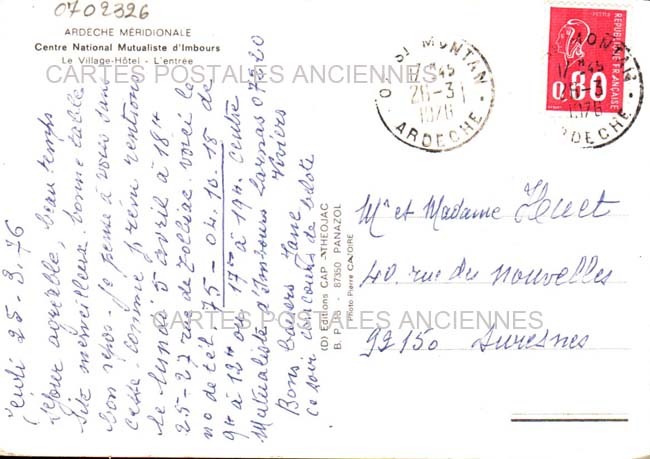 0702326
ARDECHE MÉRIDIONALE
Centre National Mutualiste d'Imbours
Le Village-Hôtel - L'entrée
CARTES POSTALES ANCIENNES
ST MONTAN
17H45
26-3
1976
ARDECHE
POSTES
REPUBLIQUE FRANÇAISE
0,80
MONTAN
17H45
26-3
1976
ARDECHE
Jeudi 25-3-76
Séjour agréable, beau temps
Site merveilleux. bonne table
bon repos. Je pense à vous sans
cesse. comme prévu rentrons
le lundi 5 avril à 18H
25-27 rue de Tolbiac. voici le
no de tel. 75-04.10.18 de
9H à 12H ou 17H à 19H. Centre
Mutualiste d'Imbours Larnas 07520
Viviers
Bons baisers Jane
ce soir concours de belote
(D) Editions CAP-THEOJAC
B. P. 16 - 87350 PANAZOL
Photo Pierre CAZORE
Mr et Madame Huet
40, rue du Nouvelles
92150 Suresnes
CARTES POSTALES ANCIENNES